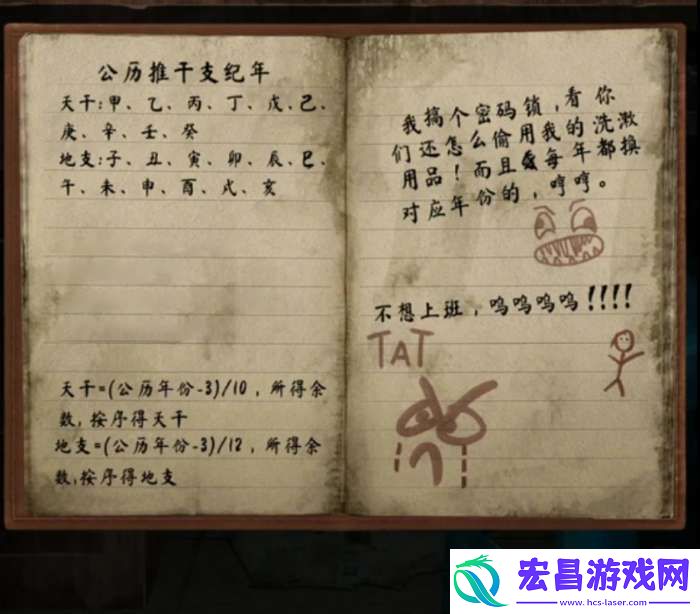 公历推干支纪年
天干:甲、乙、丙、丁、戊、己、
庚、辛、壬、癸
地支:子、丑、寅、卯、辰、巳、
午、未、申、酉、戌、亥
天干=(公历年份-3)/10，所得余
数，按序得天干
地支=(公历年份-3)/12，所得余
数，按序得地支
我搞个密码锁，看你
们还怎么偷用我的洗漱
用品！而且每年都换
对应年份的，哼哼。
不想上班，呜呜呜呜!!!!
TAT
宏昌游戏网
www.hcs-laser.com